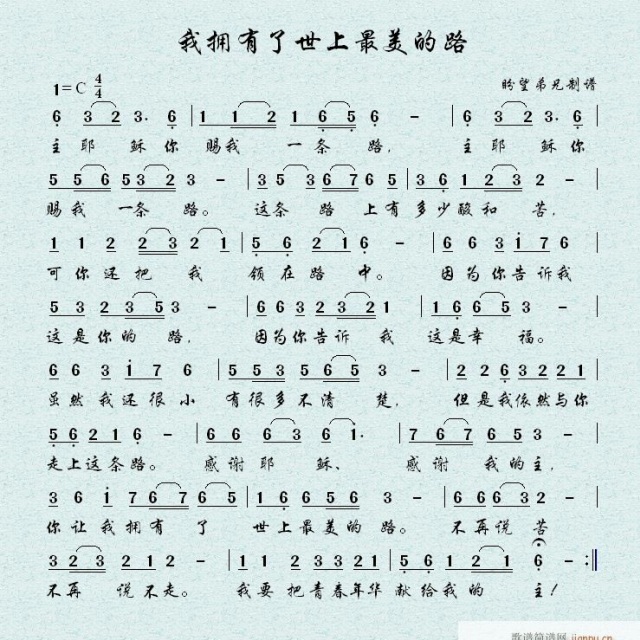 我拥有了世上最美的路
1=C 4/4
盼望弟兄制谱
6 3 2 3· 6 | 1 1 2 1 6 5 6 - | 6 3 2 3· 6 |
主耶 稣你 赐我 一条 路, 主耶 稣你
5 5 6 5 3 2 3 - | 3 5 3 6 7 6 5 | 3 6 1 2 3 2 - |
赐我 一条 路。 这条 路 上有多少酸和 苦,
1 1 2 2 3 2 1 | 5 6 2 1 6 - | 6 6 3 i 7 6 |
可你还把 我 领在路 中。 因为你告诉我
5 3 2 3 5 3 - | 6 6 3 2 3 2 1 | 1 6 6 5 3 - |
这是你的 路, 因为你告诉 我 这是幸 福。
6 6 3 i 7 6 | 5 5 3 5 6 5 3 - | 2 2 6 3 2 2 1 |
虽然我还很小 有很多不清 楚, 但是我依然与你
5 6 2 1 6 - | 6 6 6 3 6 1· | 7 6 7 6 5 3 - |
走上这条路。 感谢耶 稣、 感谢 我的主,
3 6 i 7 6 7 6 5 | 1 6 6 5 6 - | 6 6 6 3 2 - |
你让我拥有 了 世上最美的路。 不再说 苦
3 2 3 2 1 2 - | 1 1 2 3 3 2 1 | 5 6 1 2 1 6 - :‖
不再 说不走。 我要把青春年华 献给我的 主!
歌谱简谱网 jianpu.cn